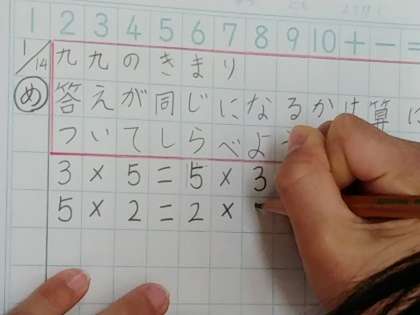 1 2 3 4 5 6 7 8 9 10 + - =
1/14 九九のきまり
め 答えが同じになるかけ算に
ついてしらべよう
3 × 5 = 5 × 3
5 × 2 = 2 ×